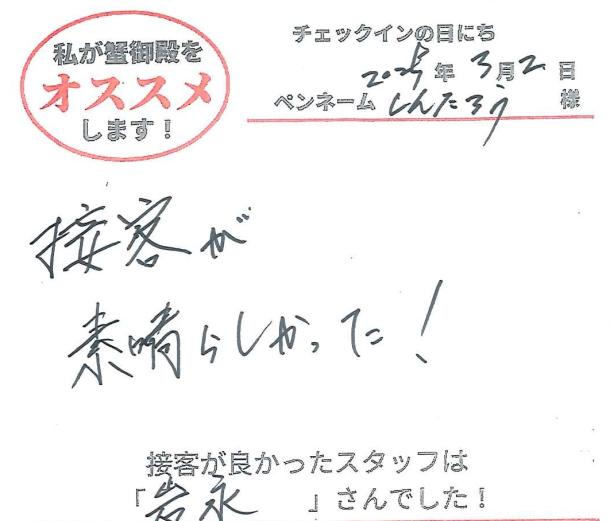 私が蟹御殿を
オススメ
します!
チェックインの日にち
2025年3月2日
ペンネーム しんたろう 様
接客が
素晴らしかった!
接客が良かったスタッフは
「岩永」さんでした!